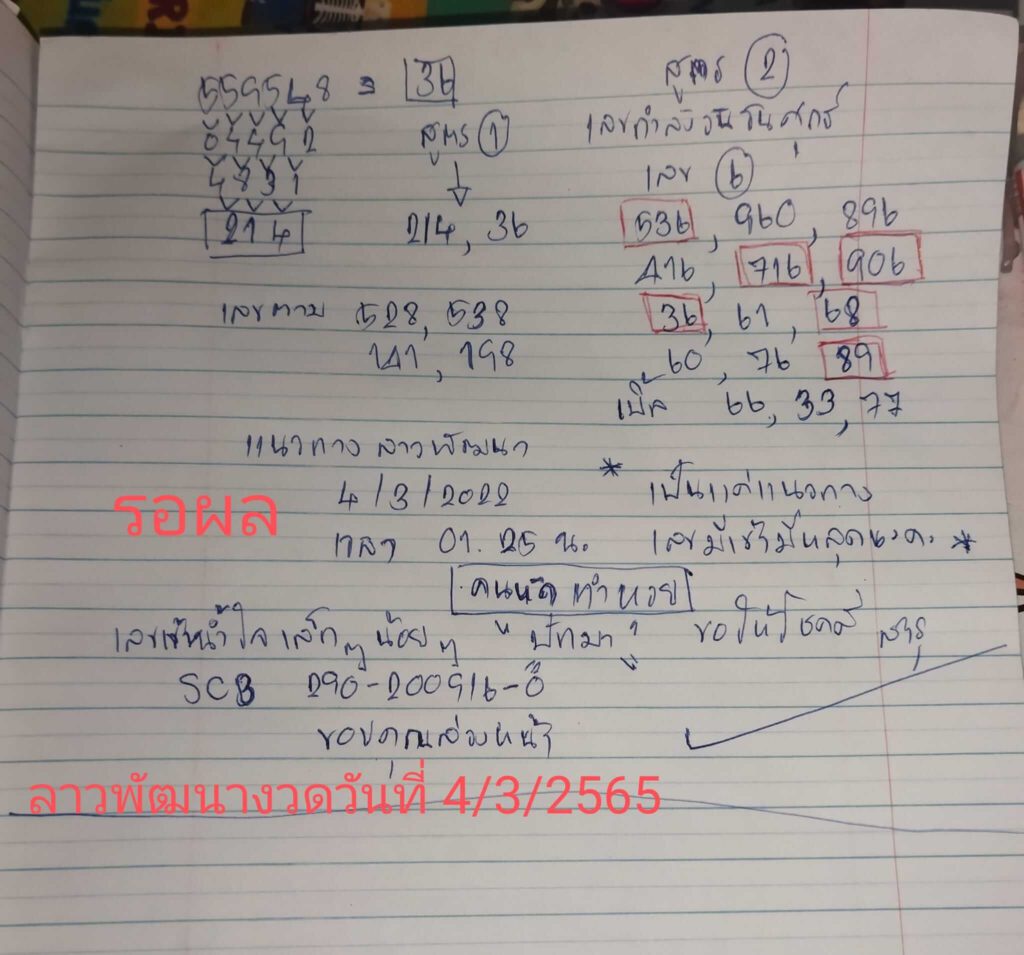 559548 = 36
04492
4831
214
สูตร ①
214, 36
เลขตาม 528, 538
141, 198
สูตร ②
เลขกำลังวัน วันศุกร์
เลข ⑥
536, 960, 896
416, 716, 906
36, 61, 68
60, 76 89
เบิ้ล 66, 33, 77
แนวทาง ลาวพัฒนา
4/3/2022
เวลา 01.25 น.
รอผล
* เป็นแค่แนวทาง
เลขมีเข้ามีหลุดนะคะ *
คนหัด ทำหวย
เล็กๆ น้อยๆ " ปัทมา " ขอให้โชคดี
SCB 290-200916-0
ขอบคุณล่วงหน้า
ลาวพัฒนางวดวันที่ 4/3/2565